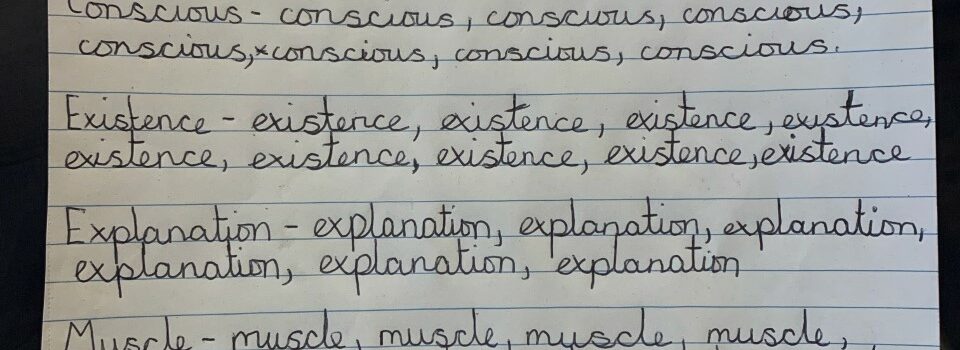 Conscious - conscious, conscious, conscious,
conscious, conscious, conscious, conscious.
Existence - existence, existence, existence, existence,
existence, existence, existence, existence, existence
Explanation - explanation, explanation, explanation,
explanation, explanation, explanation
Muscle - muscle, muscle, muscle, muscle,